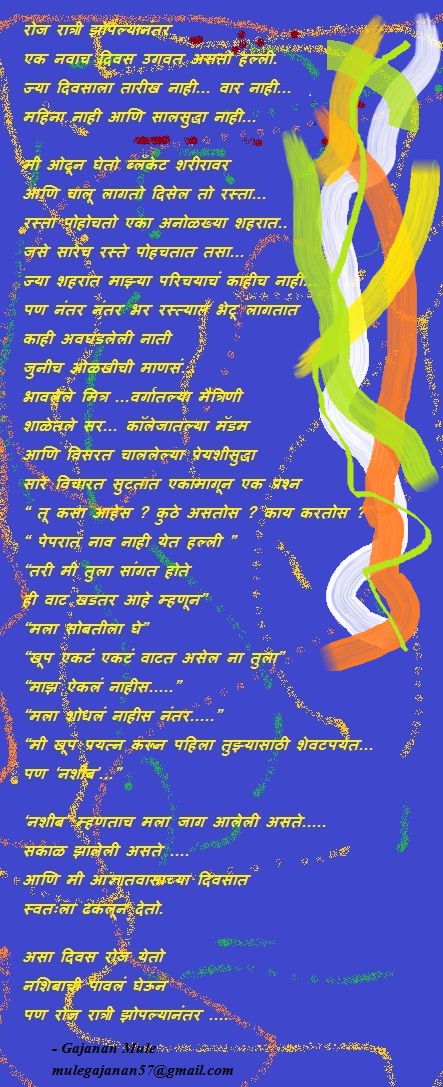 रोज रात्री झोपल्यानंतर
एक नवाच दिवस उगवत असतो हल्ली.
ज्या दिवसाला तारीख नाही... वार नाही...
महिना नाही आणि सालसुद्धा नाही...
मी ओढून घेतो ब्लँकेट शरीरावर
आणि चालू लागतो दिसेल तो रस्ता...
रस्ता पोहोचतो एका अनोळख्या शहरात..
जसे सारेच रस्ते पोहचतात तसा...
ज्या शहरात माझ्या परिचयाचं काहीच नाही..
पण नंतर नंतर भर रस्त्यात भेटू लागतात
काही अवघडलेली नाती
जुनीच ओळखीची माणसं..
भावलेले मित्र ...वर्गातल्या मैत्रिणी
शाळेतले सर... कॉलेजातल्या मॅडम
आणि विसरत चाललेल्या प्रेयशीसुद्धा
सारे विचारत सुटतात एकामागून एक प्रश्न
“ तू कसा आहेस ? कुठे असतोस ? काय करतोस ?
“ पेपरात नाव नाही येत हल्ली ”
“तरी मी तुला सांगत होते
ही वाट खडतर आहे म्हणून”
“मला सोबतीला घे”
“खूप एकटं एकटं वाटत असेल ना तुला”
“माझं ऐकलं नाहीस.....”
“मला शोधलं नाहीस नंतर.....”
“मी खूप प्रयत्न करून पहिला तुझ्यासाठी शेवटपर्यंत...
पण ‘नशीब’...”
‘नशीब’ म्हणताच मला जाग आलेली असते.....
सकाळ झालेली असते ....
आणि मी अज्ञातवासाच्या दिवसात
स्वतःला ढकलून देतो.
असा दिवस रोज येतो
नशिबाची पावलं घेऊन
पण रोज रात्री झोपल्यानंतर .....
- Gajanan Mule
mulegajanan57@gmail.com